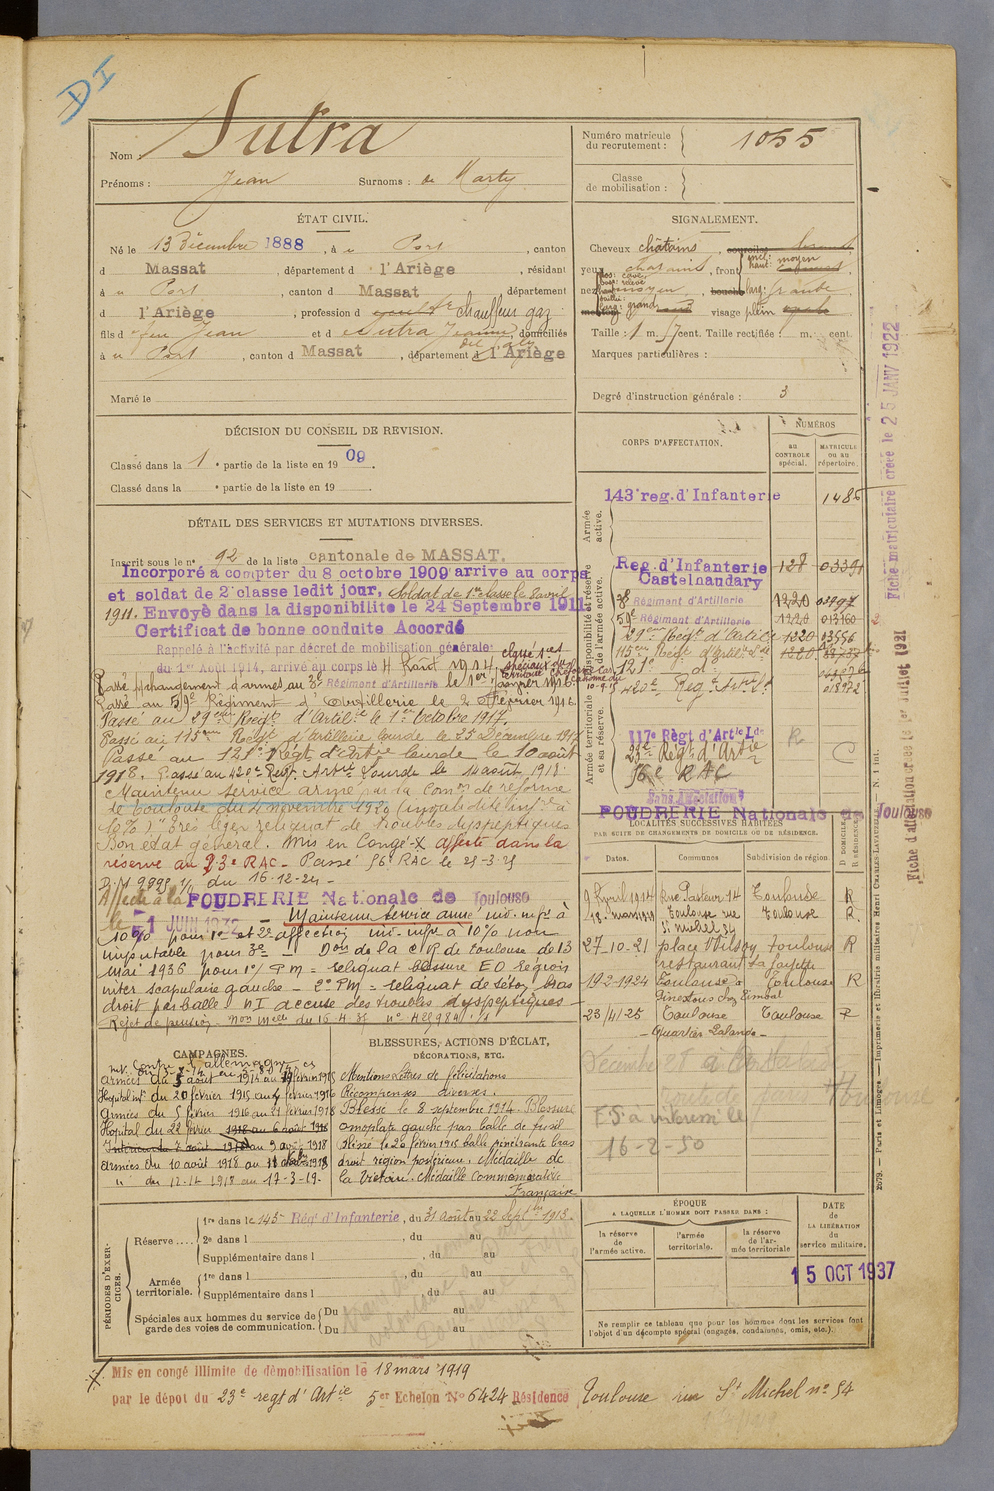 DI
Nom : Sutra
Prénoms : Jean Surnoms : de Marty
Numéro matricule du recrutement : 1055
Classe de mobilisation :
ÉTAT CIVIL.
Né le 13 Décembre 1888, à u Port, canton
d Massat, département d l'Ariège, résidant
à u Port, canton d Massat département
d l'Ariège, profession d chauffeur gaz
fils d feu Jean et d Sutra Jeanne, domiciliés
à u Port, canton d Massat, département d l'Ariège
Marié le
SIGNALEMENT.
Cheveux châtains,
yeux châtains, front incl: moyen haut:
nez moyen, larg: grande
visage plein
Taille : 1 m. 57 cent. Taille rectifiée : m. cent.
Marques particulières :
Degré d'instruction générale : 3
DÉCISION DU CONSEIL DE REVISION.
Classé dans la 1e partie de la liste en 1909.
Classé dans la e partie de la liste en 19 .
DÉTAIL DES SERVICES ET MUTATIONS DIVERSES.
Inscrit sous le n° 92 de la liste cantonale de MASSAT.
Incorporé a compter du 8 octobre 1909 arrive au corps
et soldat de 2e classe ledit jour, Soldat de 1re classe le 8 avril
1911. Envoyé dans la disponibilite le 24 Septembre 1911
Certificat de bonne conduite Accordé
Rappelé à l'activité par décret de mobilisation générale
du 1er Août 1914, arrivé au corps le 4 Août 1914.
Passé p/changement d'armes au 3e Régiment d'Artillerie le 1er Janvier 1916.
Passé au 59e Régiment d'Artillerie le 2 Février 1916
Passé au 29eme Regt d'Artilie le 1er Octobre 1917.
Passé au 115eme Regt d'artillerie lourde le 25 Décembre 1917
Passé au 121e Régt d'Artrie lourde le 10 août
1918. Passé au 420e Regt Artie Lourde le 14 août 1918.
Maintenu service armé par la Comon de réforme
de Toulouse du 4 novembre 1920 (invalidité infre à
10%) "Très léger reliquat de troubles dyspeptiques
Bon état général. Mis en Congé-X affecté dans la
réserve au 23e RAC - Passé 56e RAC le 21-3-25
D.M. 9995 1/1 du 16-12-24 -
Affecté à la POUDRERIE Nationale de Toulouse
le 1 JUIN 1932 - Maintenu service armé inv. infre à
10% pour 1e et 2e affection inv. infre à 10% non
imputable pour 3e - Don de la C/R de Toulouse du 13
mai 1936 pour 1°/ P M = reliquat blessure E O Région
inter scapulaire gauche - 2° PM = reliquat de séton bras
droit par balle. N I accuse des troubles dyspeptiques -
Rejet de pension - Non Melle du 16.4.35 n° 428984 1/1
CORPS D'AFFECTATION.
NUMÉROS
au CONTROLE spécial.
MATRICULE ou au répertoire.
Armée active.
143e reg. d'Infanterie 1485
Disponibilité et réserve de l'armée active.
Reg. d'Infanterie Castelnaudary 128 03391
3e Régiment d'Artillerie 1220 03797
59e Régiment d'Artillerie 1220 013160
29eme Régt d'Artlie 1220 03556
115eme Regt d'Artilie Lde 1220
121e d°
420e Reg. Artie Lde 018972
Armée territoriale et sa réserve.
117e Régt d'Artie Lde R
23e Régt d'Artie C
56e RAC
Sans Affectation
POUDRERIE Nationale de Toulouse
LOCALITÉS SUCCESSIVES HABITÉES
PAR SUITE DE CHANGEMENTS DE DOMICILE OU DE RÉSIDENCE.
Dates. Communes Subdivision de région. D DOMICILE R RÉSIDENCE
9 Avril 1914 Rue Pasteur 14 Toulouse R
18 mars 1919 Toulouse rue St michel 54 Toulouse R
27-10-21 place Wilson Toulouse R
restaurant La fayette
19-2-1924 Toulouse Ginestous chez Simbat Toulouse R
23/4/25 Toulouse Toulouse R
- Quartier Lalande -
16-2-50
CAMPAGNES.
Contre l'allemagne
armées du 5 août 1914 au 19 février 1915
Hopital int. du 20 février 1915 au 4 février 1916
Armées du 5 février 1916 au 21 février 1918
Hopital du 22 février 1918 au 6 août 1918
Intérieur du 7 août 1918 au 9 août 1918
armées du 10 août 1918 au 11 octobre 1918
" du 12-11 1918 au 17-3-19.
BLESSURES, ACTIONS D'ÉCLAT,
DÉCORATIONS, ETC.
Mentions lettres de félicitations
Récompenses diverses.
Blessé le 8 septembre 1914. Blessure
omoplate gauche par balle de fusil
Blessé le 20 février 1915 balle pénétrante bras
droit région postérieure. Médaille de
la Victoire. Médaille commémorative
Française
PÉRIODES D'EXERCICES.
Réserve ....
1re dans le 143e Rég. d'Infanterie, du 31 Août au 22 Septbre 1913.
2e dans l , du au
Supplémentaire dans l , du au
Armée territoriale.
1re dans l , du au
Supplémentaire dans l , du au
Spéciales aux hommes du service de garde des voies de communication.
Du au
Du au
ÉPOQUE
A LAQUELLE L'HOMME DOIT PASSER DANS :
la réserve de l'armée active.
l'armée territoriale.
la réserve de l'armée territoriale
DATE de LA LIBÉRATION du service militaire.
15 OCT 1937
Ne remplir ce tableau que pour les hommes dont les services font
l'objet d'un décompte spécial (engagés, condamnés, omis, etc.).
Mis en congé illimite de démobilisation le 18 mars 1919
par le dépot du 23e regt d'Artie 5er Echelon No 6424 Résidence Toulouse rue St Michel n° 54
Fiche matriculaire créée le 25 JANV 1922
Fiche d'affectation créée le 1er Juillet 1921
2679. — Paris et Limoges. — Imprimerie et librairie militaires Henri CHARLES-LAVAUZELLE. N. 1 int.